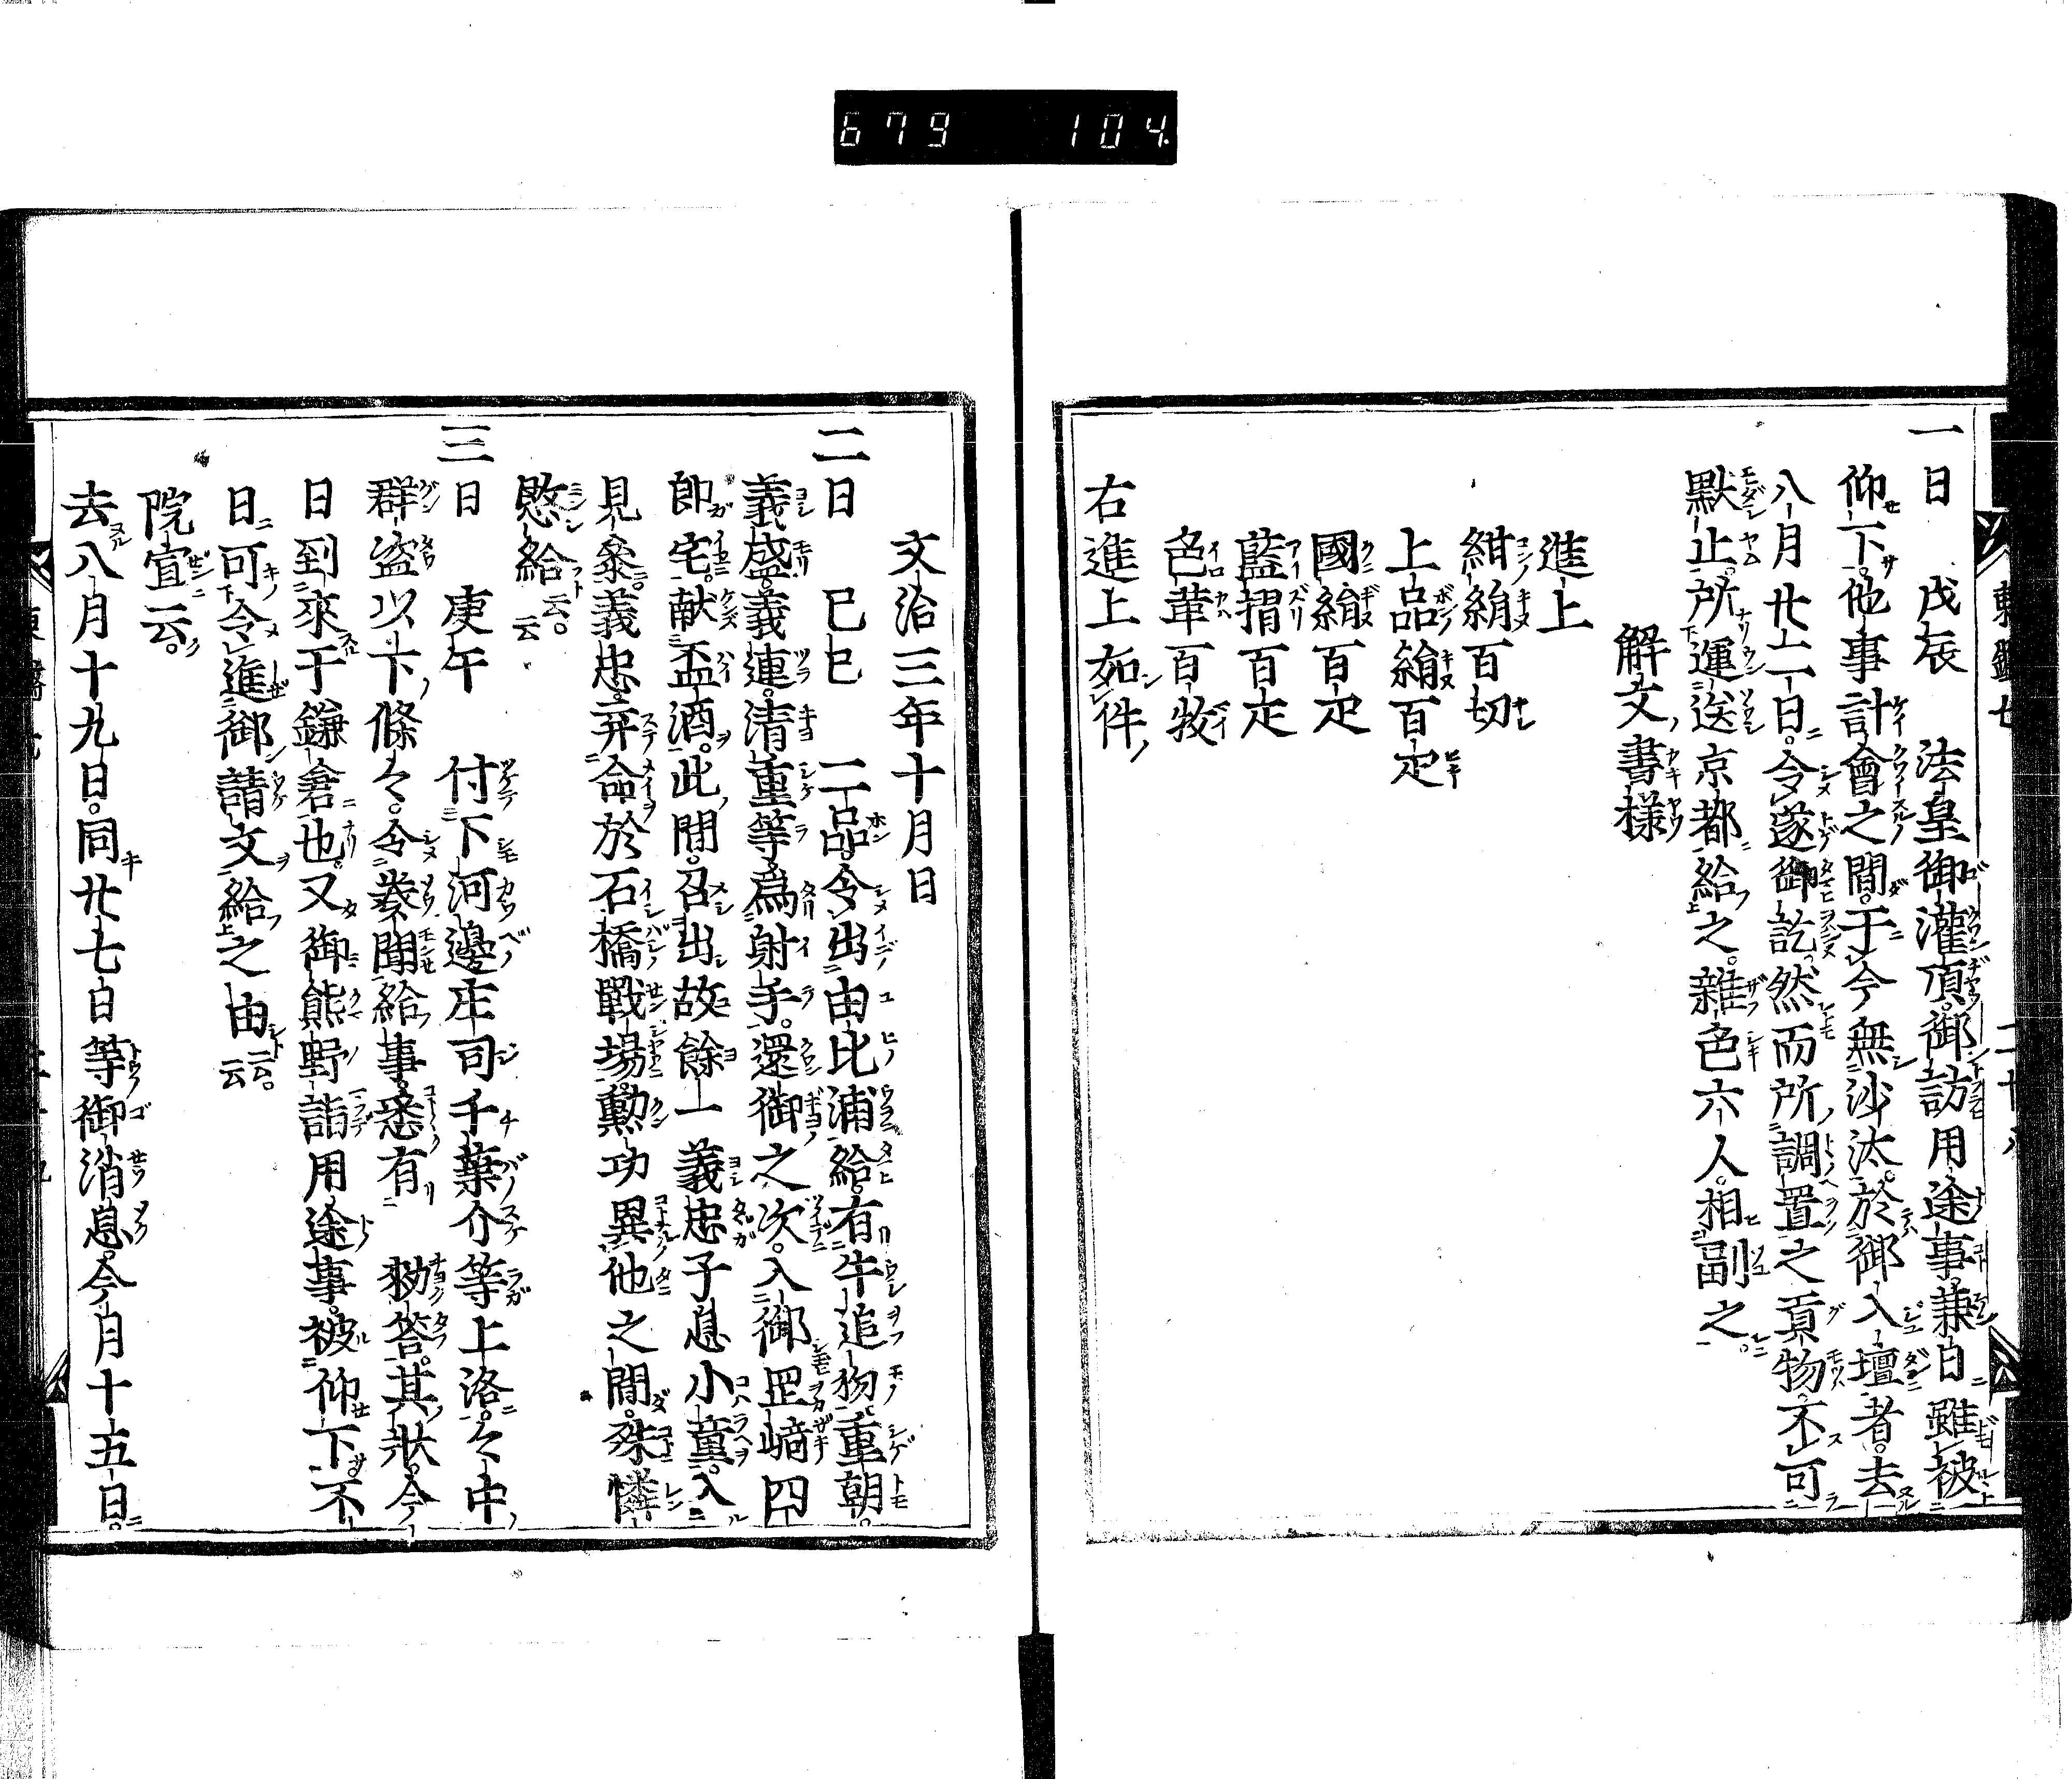 679 104
一日　戊辰　法皇御灌頂。御訪用途事。兼日雖被
仰下。他事計會之間。于今無沙汰。於御入壇者。去
八月廿二日。令遂御訖。然而所調置之貢物。不可
默止。所運送京都給之。雜色六人。相副之。
解文書樣
進上
紺絹百切
上品絹百疋
國絹百疋
藍摺百疋
色革百枚
右進上如件
文治三年十月日
二日　己巳　二品令出由比浦給。有牛追物。重朝。
義盛。義連。清重等爲射手。還御之次。入御岡﨑四
郎宅。献盃酒。此間。召出故餘一義忠子息小童。入
見參。義忠。弃命於石橋戰場。勳功異他之間。殊憐
愍給云云。
三日　庚午　付下河邊庄司千葉介等上洛。々中
群盗以下條々。令奏聞給事。悉有　勑答。其狀。今
日到來于鎌倉也。又御熊野詣用途事。被仰下。不
日可令進御請文給之由云云。
院宣云。
去八月十九日。同廿七日等御消息。今月十五日。